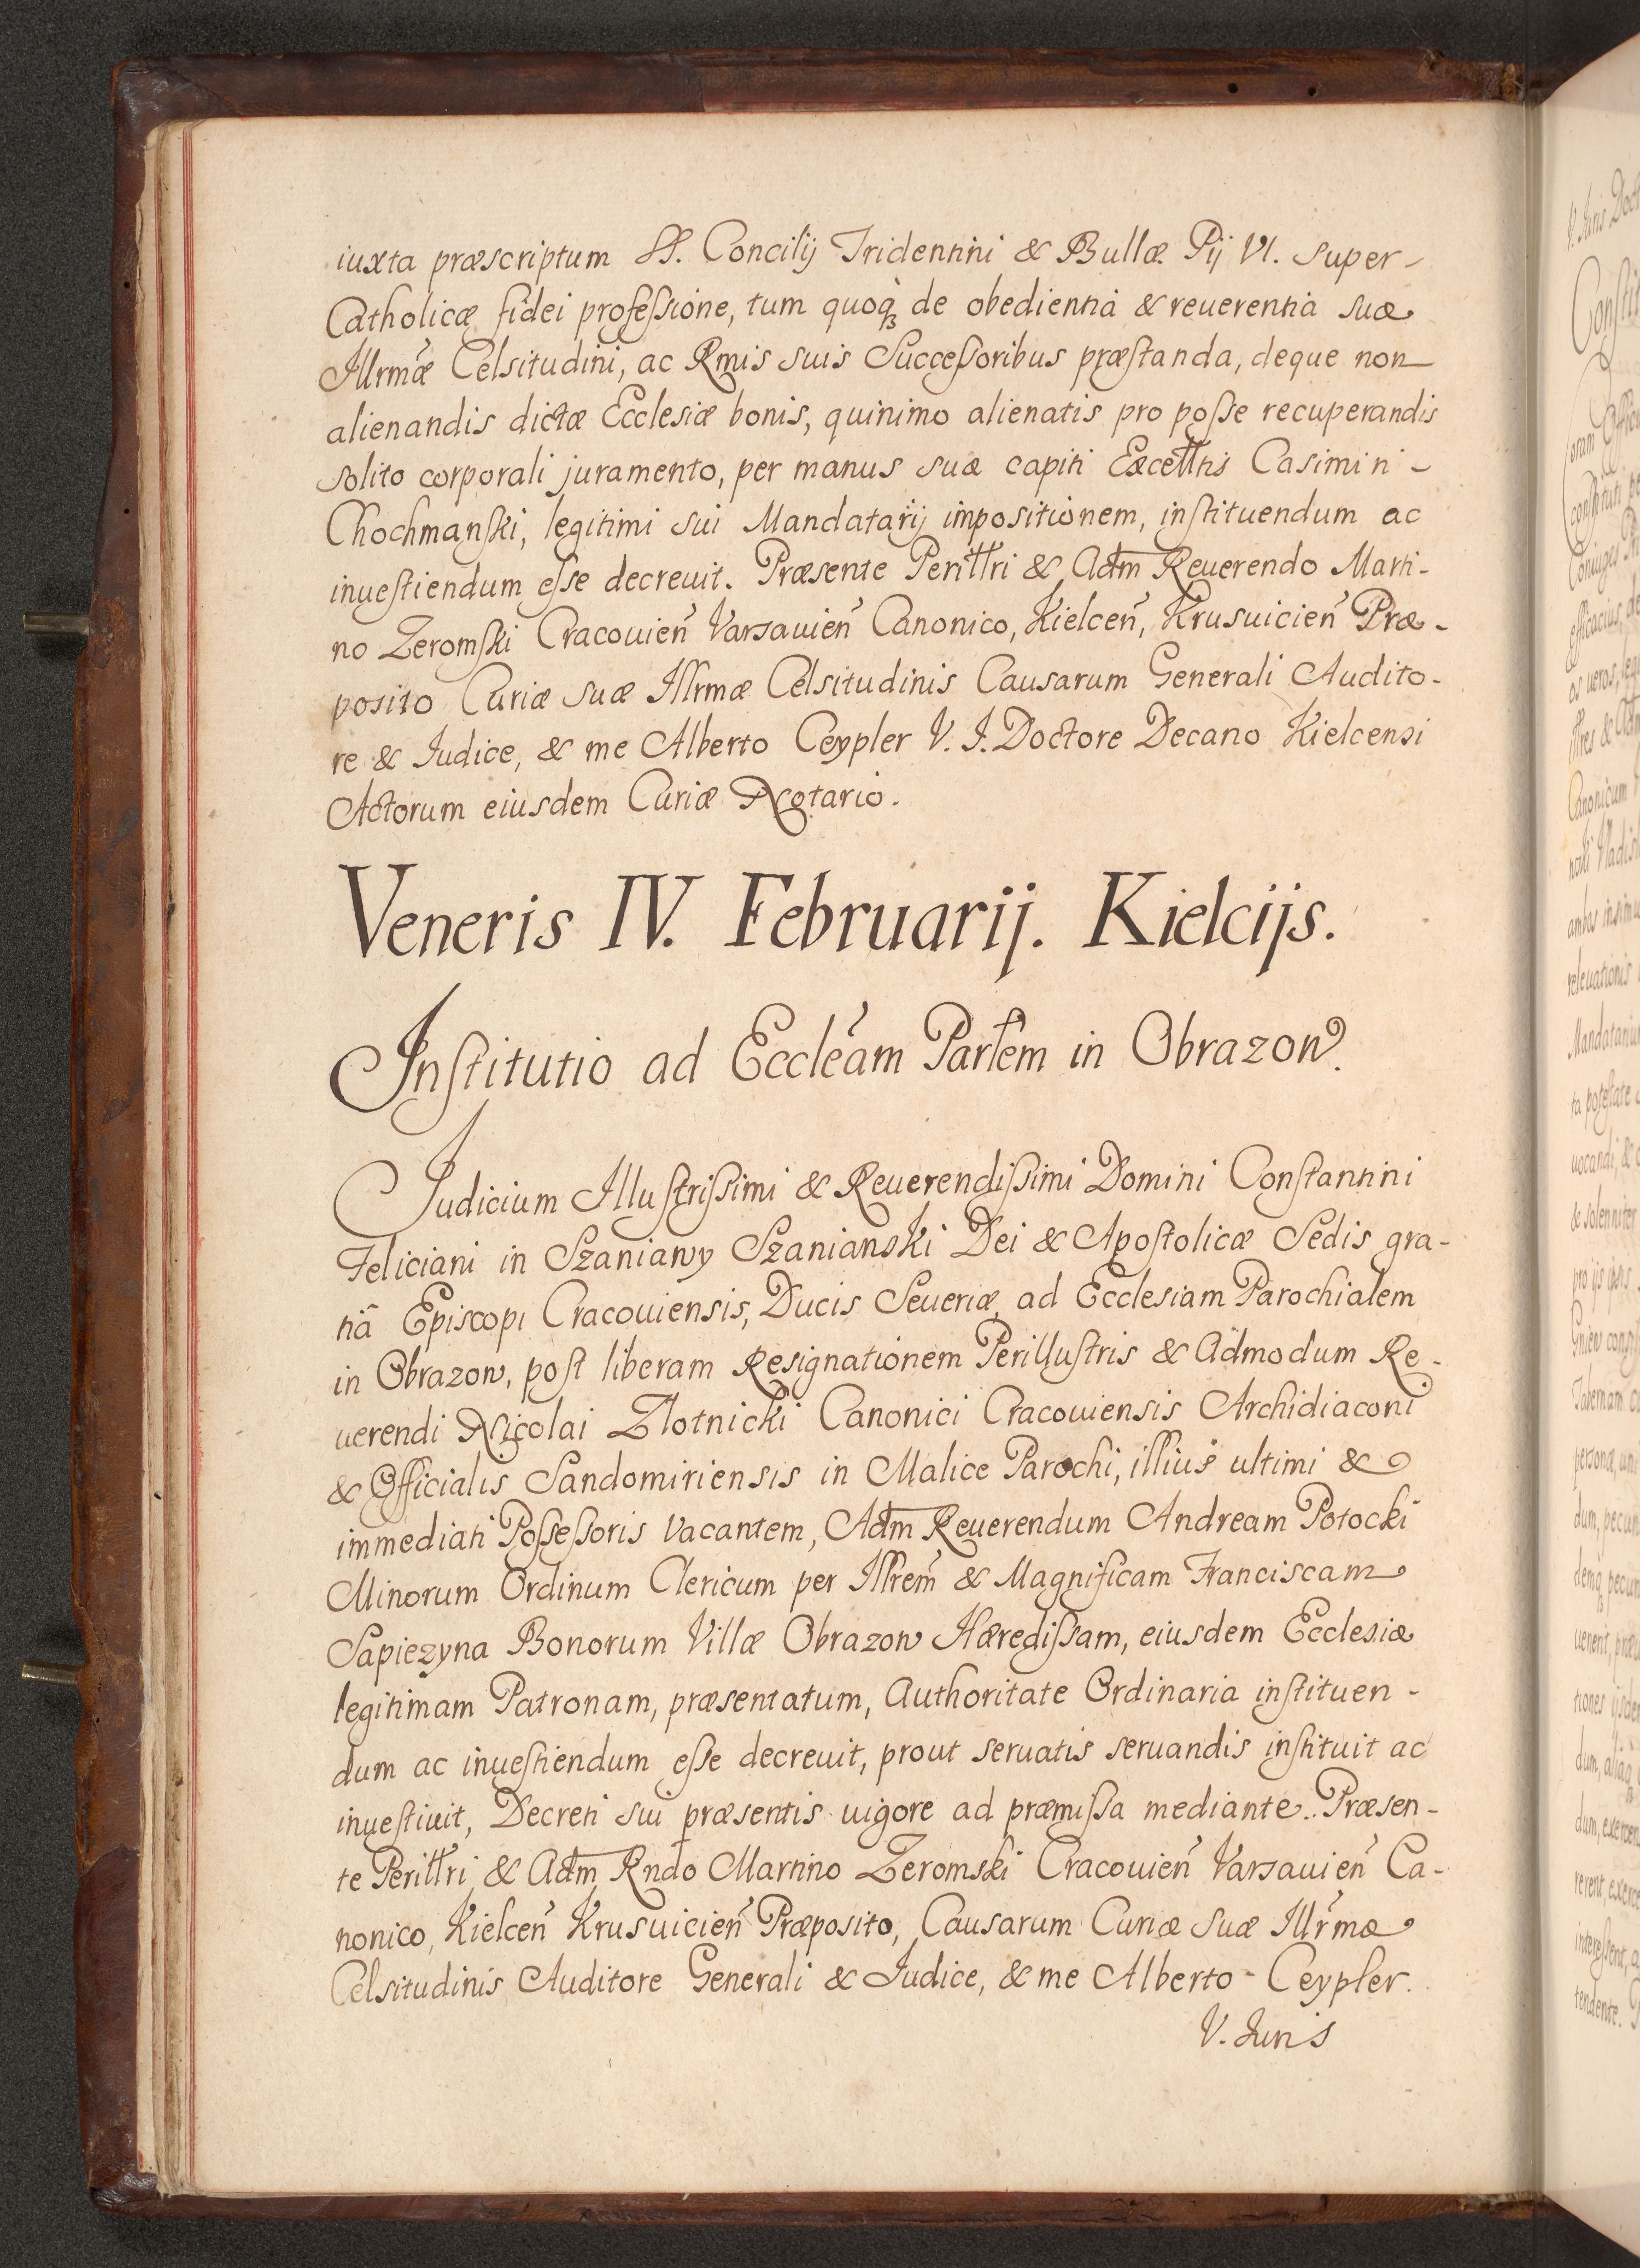 iuxta præscriptum SS. Concilij Tridentini & Bullæ Pij VI. super-
Catholicæ fidei professione, tum quoq3 de obedientia & reuerentia suæ
Illrmæ Celsitudini, ac Rmis suis Successoribus præstanda, deque non
alienandis dictæ Ecclesiæ bonis, quinimo alienatis pro posse recuperandis
solito corporali juramento, per manus suæ capiti Excelltis Casimiri -
Chochmanski, legitimi sui Mandatarij impositionem, instituendum ac
inuestiendum esse decreuit. Præsente Perilltri & Adm Reuerendo Marti-
no Zeromski Cracouien Varsauien Canonico, Kielcen, Krusuicien Præ-
posito Curiæ suæ Illrmæ Celsitudinis Causarum Generali Audito-
re & Iudice, & me Alberto Ceypler V. I. Doctore Decano Kielcensi
Actorum eiusdem Curiæ Notario.
Veneris IV. Februarij. Kielcijs.
Institutio ad Eccleam Parlem in Obrazow.
Iudicium Illustrissimi & Reuerendissimi Domini Constantini
Feliciani in Szaniawy Szaniawski Dei & Apostolicæ Sedis gra-
tiâ Episcopi Cracouiensis, Ducis Seueriæ, ad Ecclesiam Parochialem
in Obrazow, post liberam Resignationem Perillustris & Admodum Re-
uerendi Nicolai Zlotnicki Canonici Cracouiensis Archidiaconi
& Officialis Sandomiriensis in Malice Parochi, illius ultimi &
immediati Possessoris vacantem, Adm Reuerendum Andream Potocki
Minorum Ordinum Clericum per Illrem & Magnificam Franciscam
Sapiezyna Bonorum Villæ Obrazow Hæredissam, eiusdem Ecclesiæ
legitimam Patronam, præsentatum, Authoritate Ordinaria instituen-
dum ac inuestiendum esse decreuit, prout seruatis seruandis instituit ac
inuestiuit, Decreti sui præsentis uigore ad præmissa mediante. Præsen-
te Perilltri & Adm Rndo Martino Zeromski Cracouien Varsauien Ca-
nonico, Kielcen Krusuicien Præposito, Causarum Curiæ suæ Illrmæ
Celsitudinis Auditore Generali & Iudice, & me Alberto - Ceypler.
V. Iuris